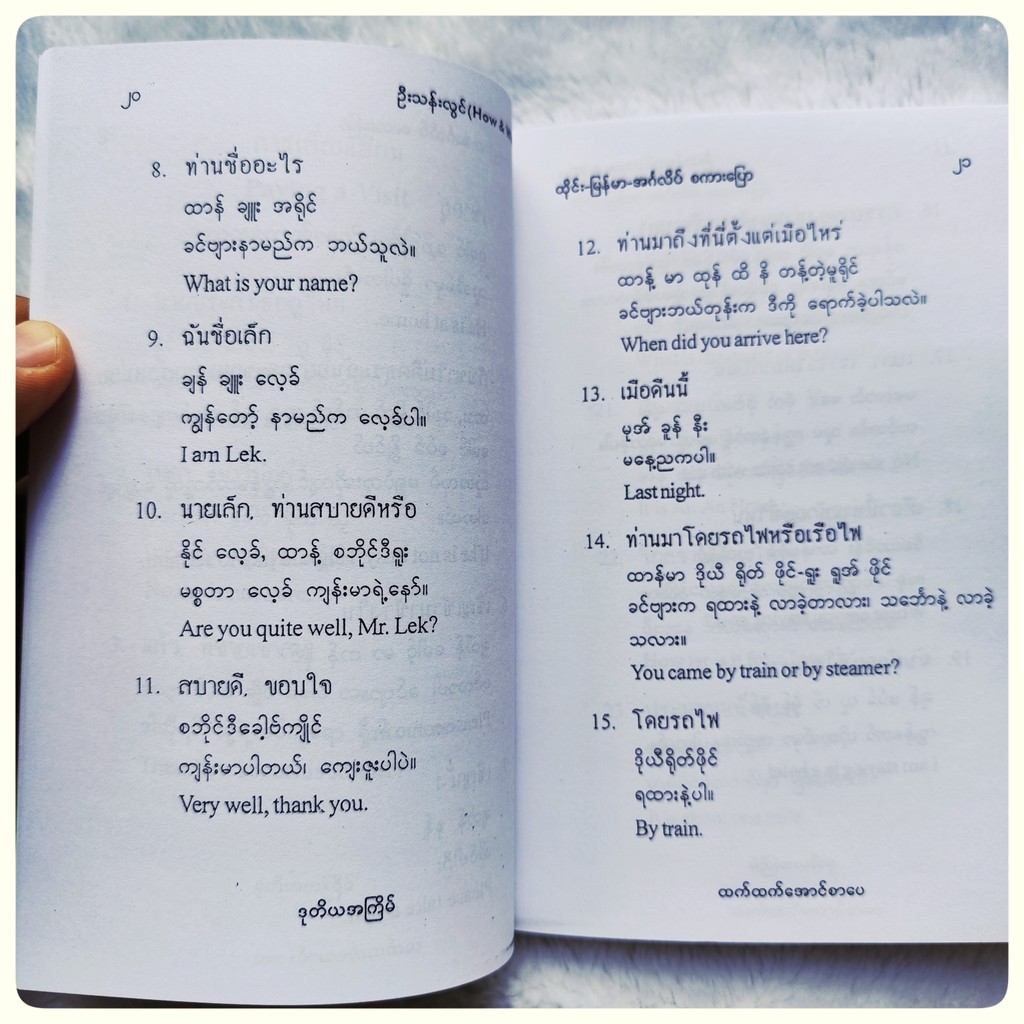 ၂၀
ဦးသန်းလွင် (How &
8. ท่านชื่ออะไร
ထာန် ချူး အရိုင်
ခင်ဗျားနာမည်က ဘယ်သူလဲ။
What is your name?
9. ฉันชื่อเล็ก
ချန် ချူး လေ့ခ်
ကျွန်တော့် နာမည်က လေ့ခ်ပါ။
I am Lek.
10. นายเล็ก, ท่านสบายดีหรือ
နိုင် လေ့ခ်, ထာန့် စဘိုင်ဒီရူး
မစ္စတာ လေ့ခ် ကျန်းမာရဲ့နော်။
Are you quite well, Mr. Lek?
11. สบายดี, ขอบใจ
စဘိုင်ဒီခေါ့ဗ်ကျိုင်
ကျန်းမာပါတယ်၊ ကျေးဇူးပါပဲ။
Very well, thank you.
ဒုတိယအကြိမ်
ထိုင်း-မြန်မာ-အင်္ဂလိပ် စကားပြော
၂၁
12. ท่านมาถึงที่นี่ตั้งแต่เมื่อไหร่
ထာန့် မာ ထုန် ထိ နိ တန့်တဲ့မူရိုင်
ခင်ဗျားဘယ်တုန်းက ဒီကို ရောက်ခဲ့ပါသလဲ။
When did you arrive here?
13. เมื่อคืนนี้
မုအ် ခူန် နီး
မနေ့ညကပါ။
Last night.
14. ท่านมาโดยรถไฟหรือเรือไฟ
ထာန်မာ ဒိုယီ ရိုတ် ဖိုင်-ရူး ရူအ် ဖိုင်
ခင်ဗျားက ရထားနဲ့ လာခဲ့တာလား၊ သင်္ဘောနဲ့ လာခဲ့
သလား။
You came by train or by steamer?
15. โดยรถไฟ
ဒိုယီရိုတ်ဖိုင်
ရထားနဲ့ပါ။
By train.
ထက်ထက်အောင်စာပေ